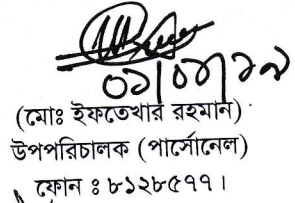 (মোঃ ইফতেখার রহমান)
উপপরিচালক (পার্সোনেল)
ফোন ঃ ৮১২৮৫৭৭।